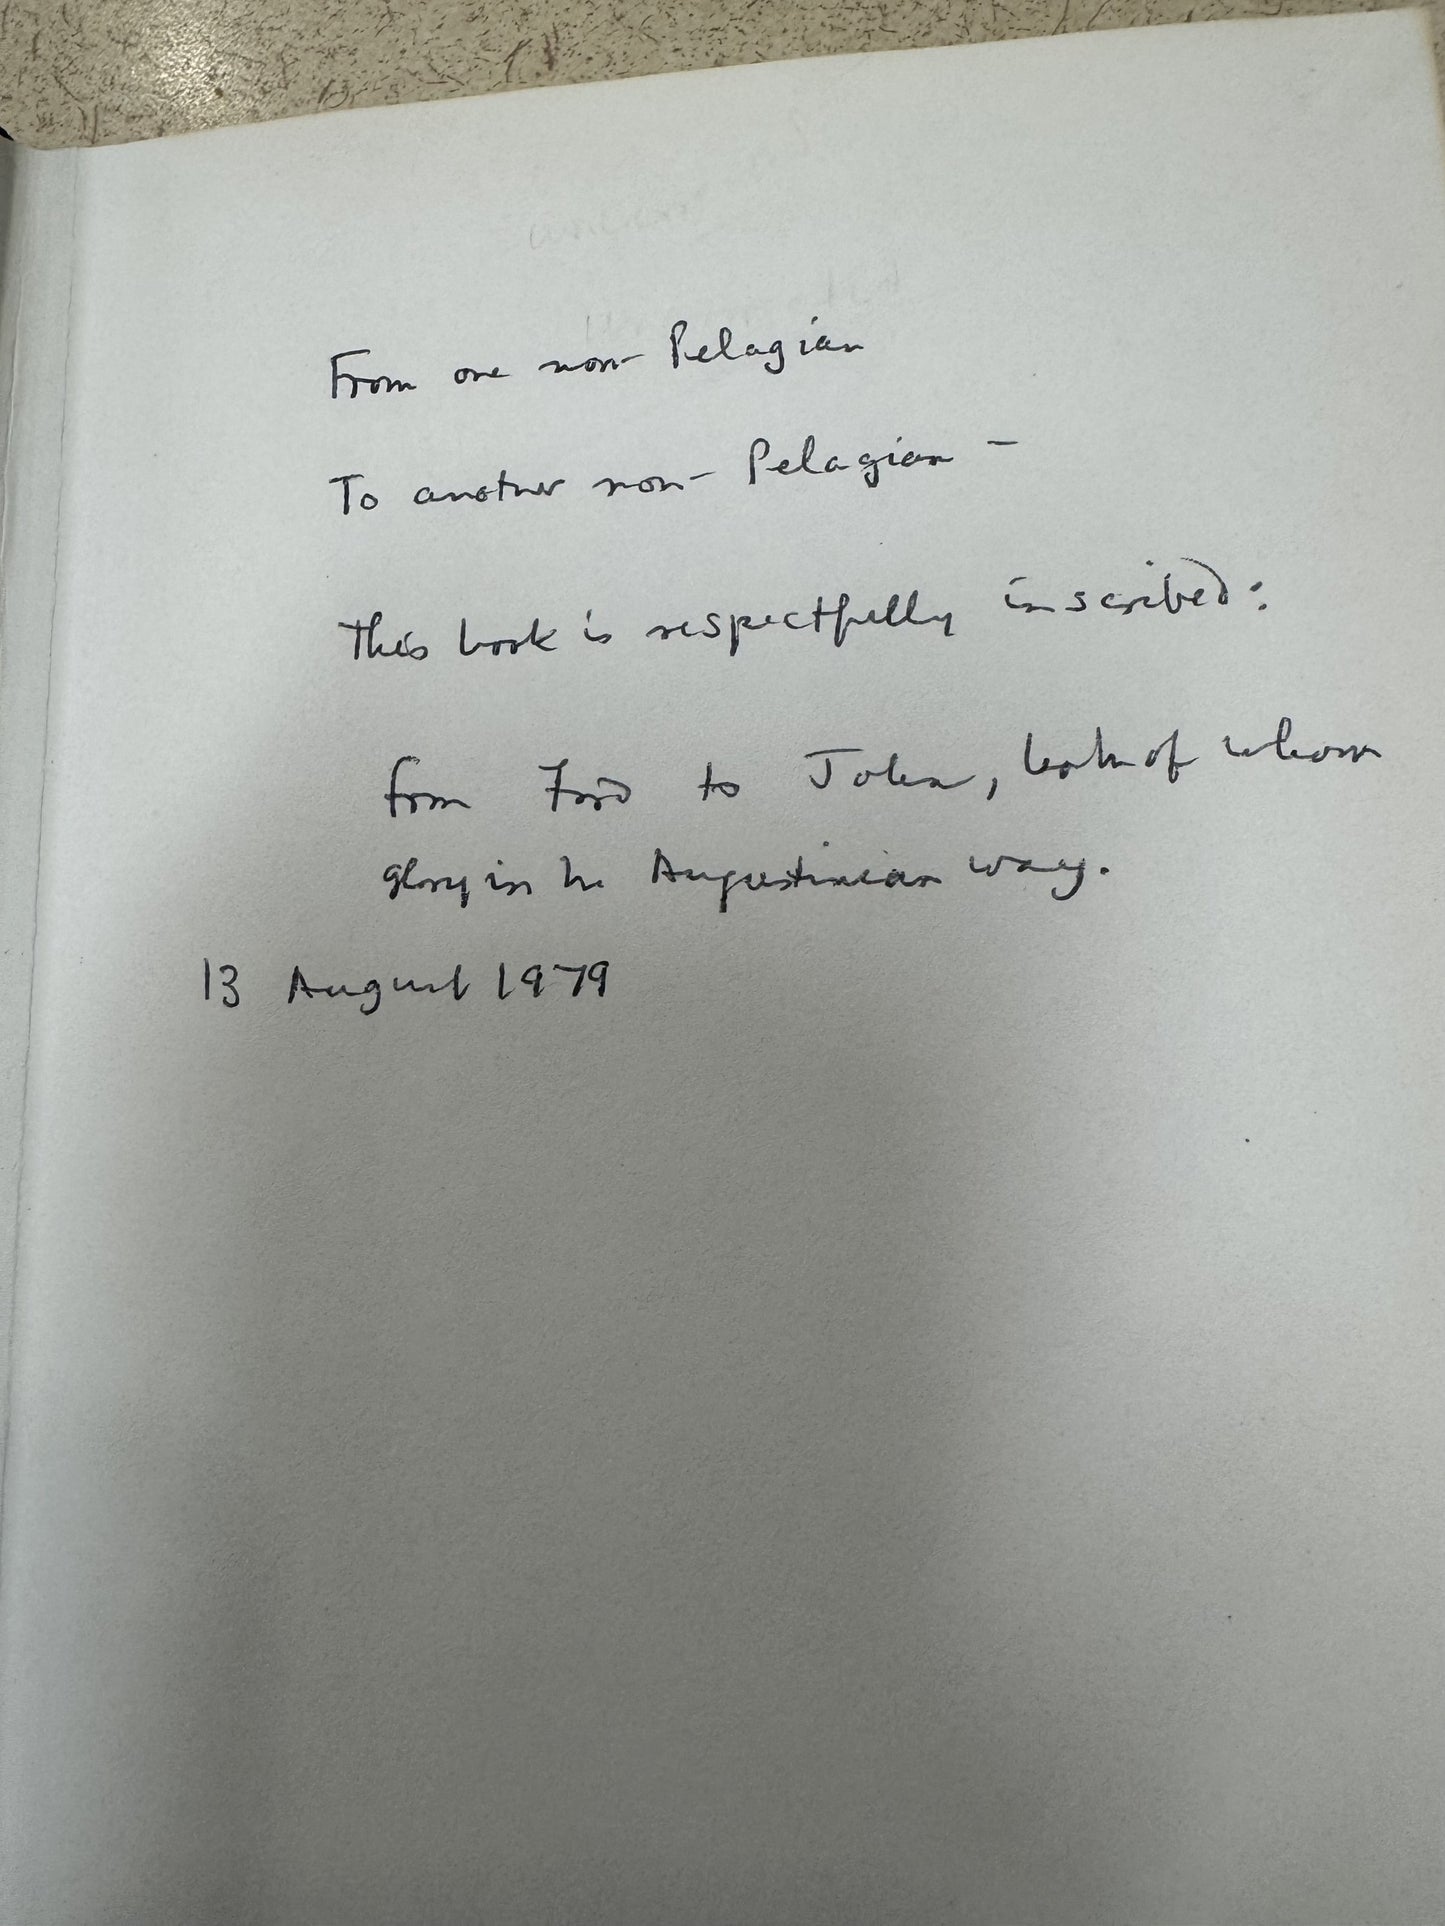 From one non-Pelagian
To another non-Pelagian –
This book is respectfully inscribed:
from Ford to John, both of whom
glory in the Augustinian way.
13 August 1979